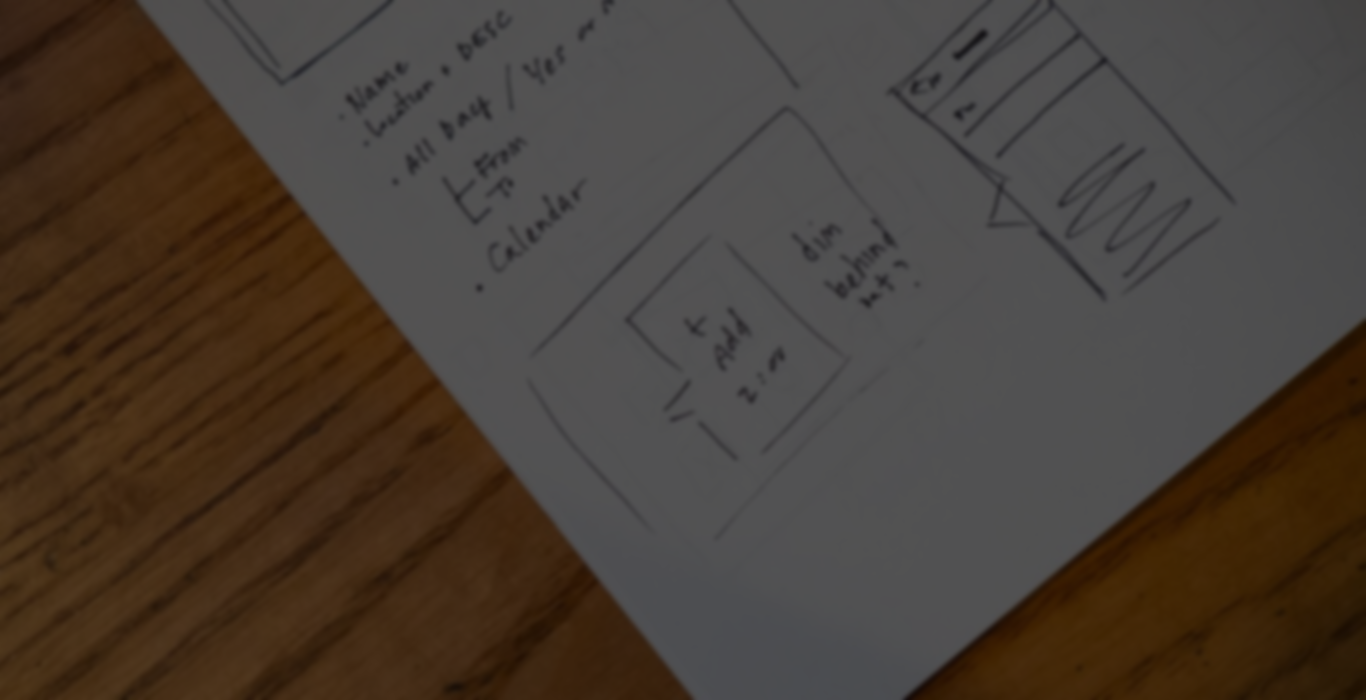 · Name
· Location + DESC
· All Day / Yes or
From
To
· Calendar
dim
behind
it?
+
Add